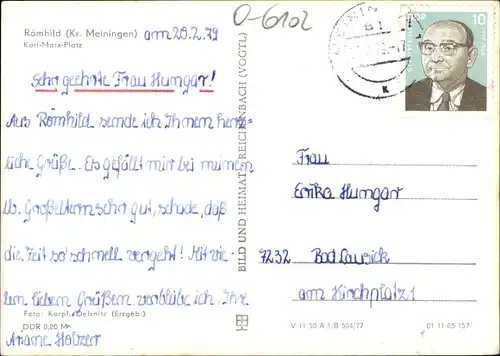 Römhild (Kr. Meiningen) am 20.2.79
Karl-Marx-Platz
O-6102
Sehr geehrte Frau Hungar!
Aus Römhild sende ich Ihnen herz-
liche Grüße. Es gefällt mir bei meinen
lb. Großeltern sehr gut, schade, daß
die Zeit so schnell vergeht! Mit vie-
len lieben Grüßen verbleibe ich, Ihre
Ariane Holzer
Foto: Karpf, Oelsnitz (Erzgeb.)
DDR 0,20 M
BILD UND HEIMAT REICHENBACH (VOGTL)
61
K
DDR 10
Frau
Erika Hungar
7232 Bad Lausick
am Kirchplatz 1
V 11 50 A 1/B 504/77 01 11 05 157